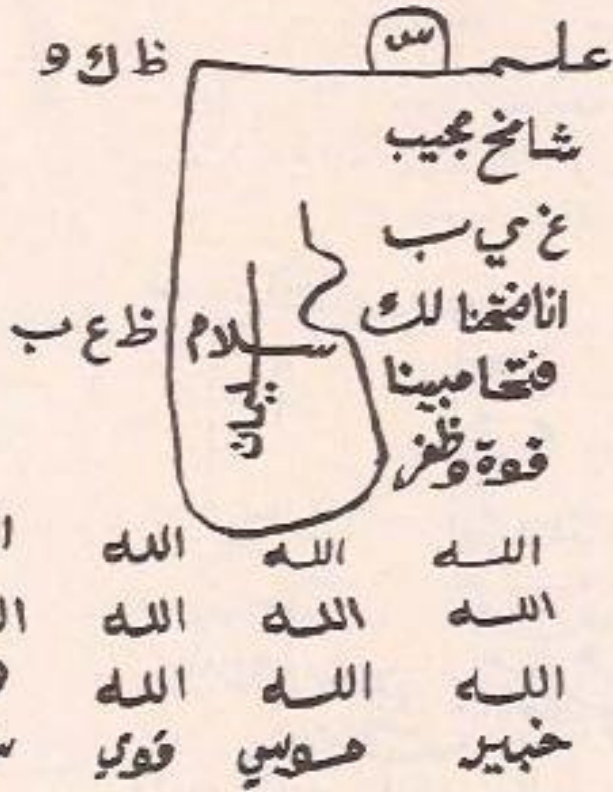 علم س ظ ك و
شامخ مجيب
غ ي ب
انا فتحنا لك
فتحا مبينا
قوة وظفر
سلام
ظ ع ب
الله الله الله
الله الله الله
الله الله الله
خبير موسي قوي